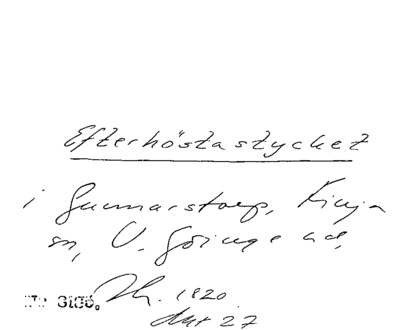 Efterhöstastycket
i Gunnarstorp, Kinja
sn, V. Göinge hd,
1820
akt 27